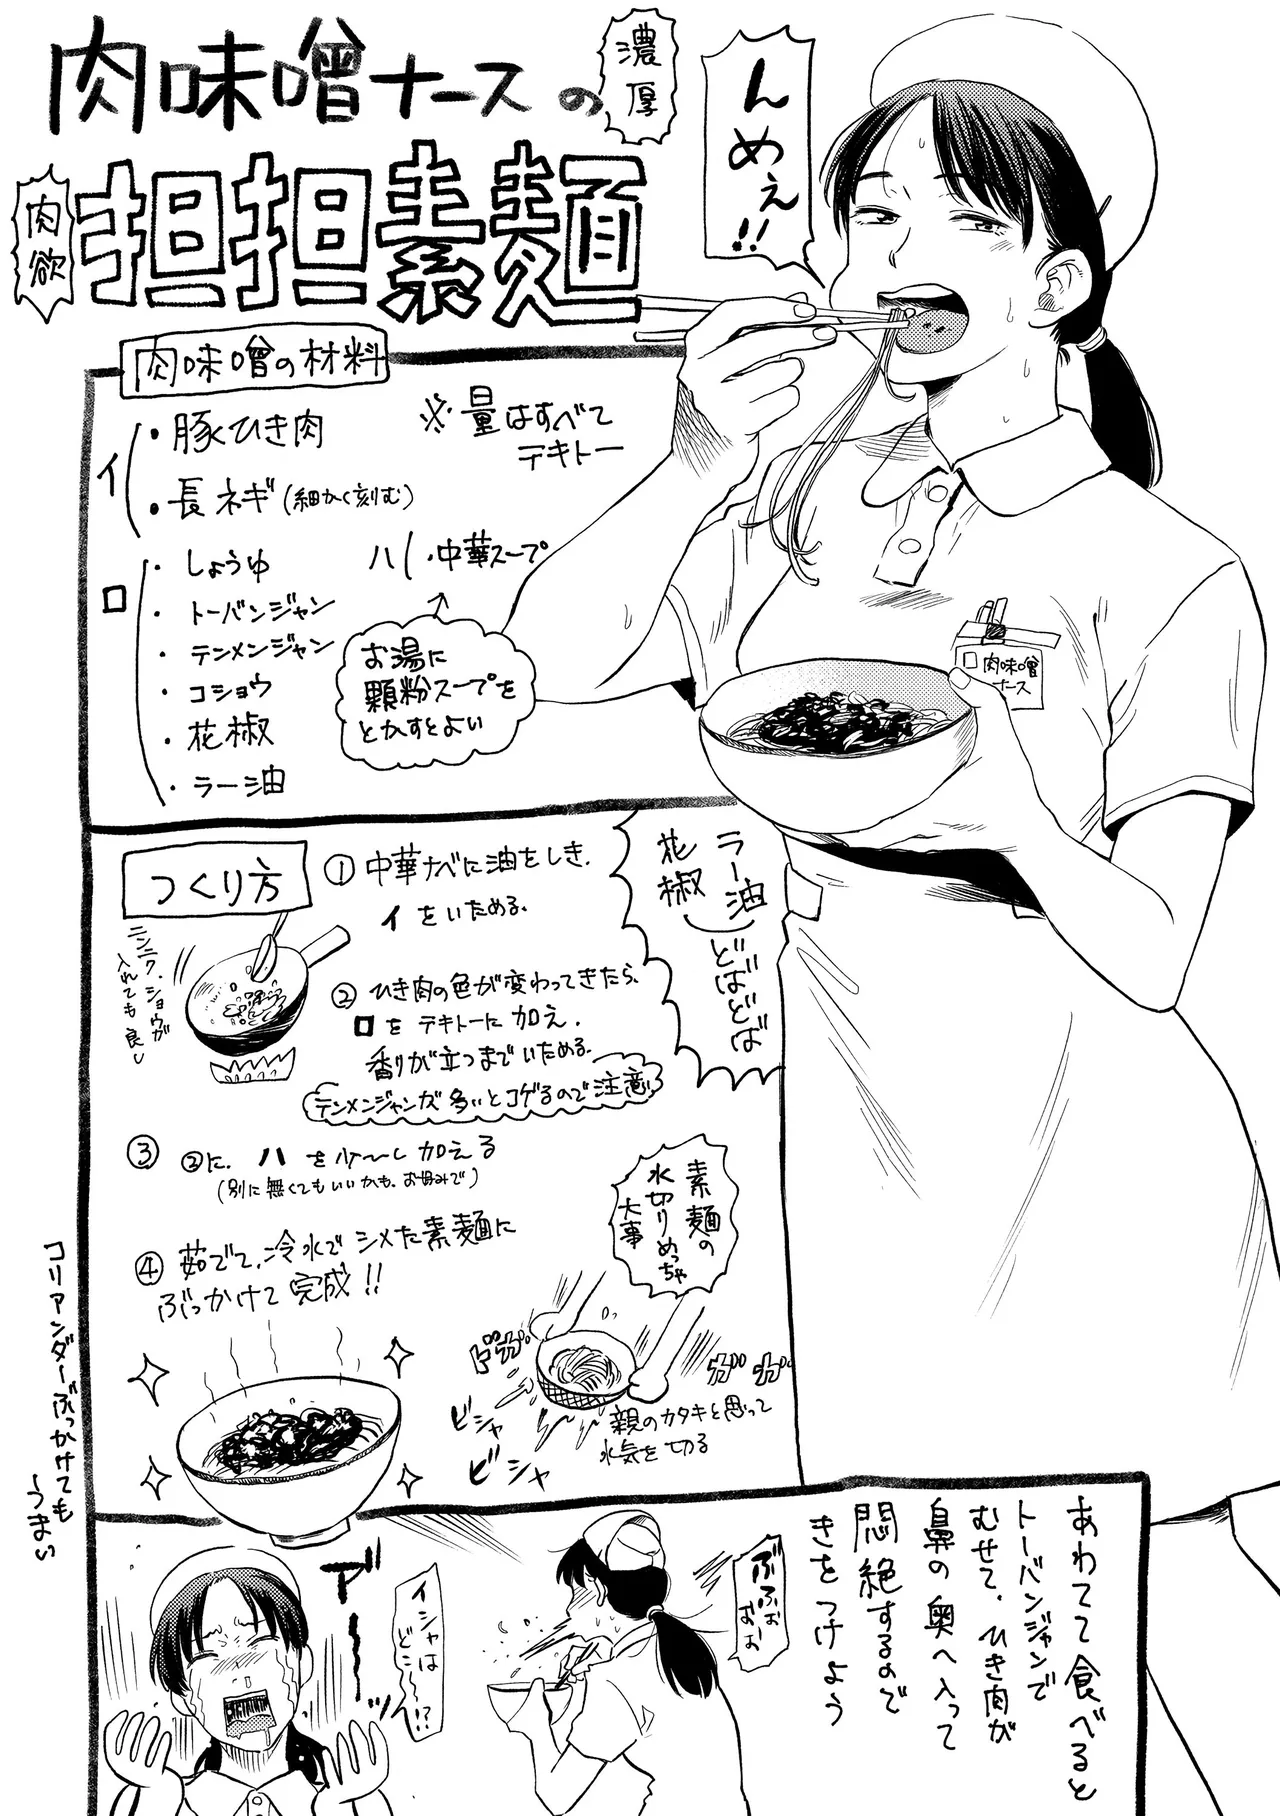 肉味噌ナースの
濃厚
肉欲
担担素麺
んめぇ!!
肉味噌の材料
イ
・豚ひき肉
・長ネギ(細かく刻む)
※量はすべて
テキトー
ロ
・しょうゆ
・トーバンジャン
・テンメンジャン
・コショウ
・花椒
・ラー油
ハ ・中華スープ
お湯に
顆粒スープを
とかすとよい
肉味噌
ナース
つくり方
①中華ナベに油をしき、
イをいためる。
ニンニク、ショウガ
入れても良し
②ひき肉の色が変わってきたら、
ロをテキトーに加え、
香りが立つまでいためる。
テンメンジャンが多いとコゲるので注意
ラー油
花椒
どばどば
③②に、ハを少〜し加える
(別に無くてもいいかも、お好みで)
④茹でて、冷水でシメた素麺に
ぶっかけて完成!!
素麺の
水切りめっちゃ
大事
ビシャ
ビシャ
親のカタキと思って
水気を切る
コリアンダーぶっかけても
うまい
あわてて食べると
トーバンジャンで
むせて、ひき肉が
鼻の奥へ入って
悶絶するので
きをつけよう
ぶふぉ
おぉ
イシャは
どこ〜!?
アーーッ